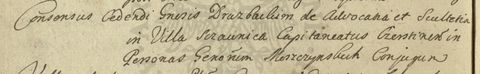 Consensus Cedendi Gnosis Drazbaelum de Advocatia et Scultetia
in Villa Seraunica Capitaneatus Czerstinen in
Personas Genorum Morzczynskich Conjugum